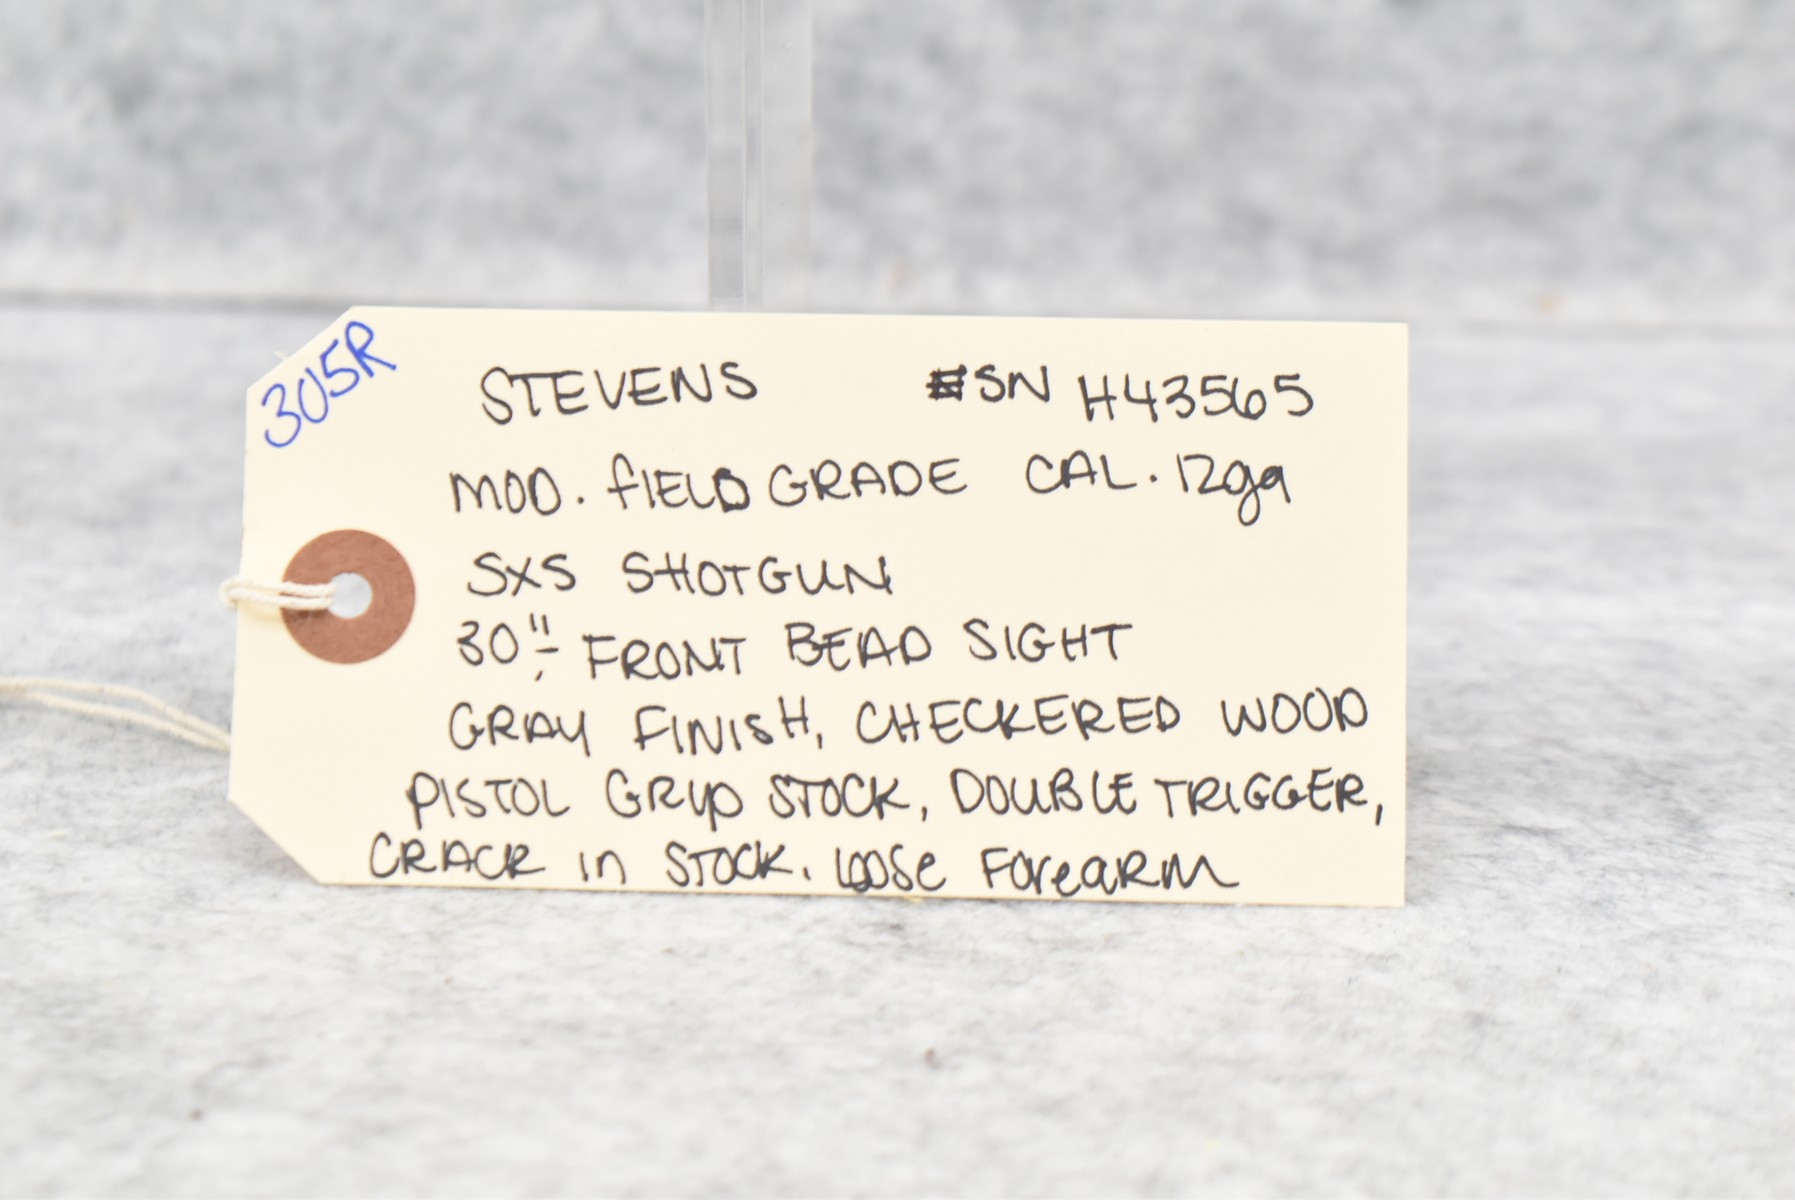 305R
STEVENS SN H43565
MOD. FIELD GRADE CAL. 12ga
SXS SHOTGUN
30"- FRONT BEAD SIGHT
GRAY FINISH, CHECKERED WOOD
PISTOL GRIP STOCK, DOUBLE TRIGGER,
CRACK in STOCK. LOOSe ForeARM